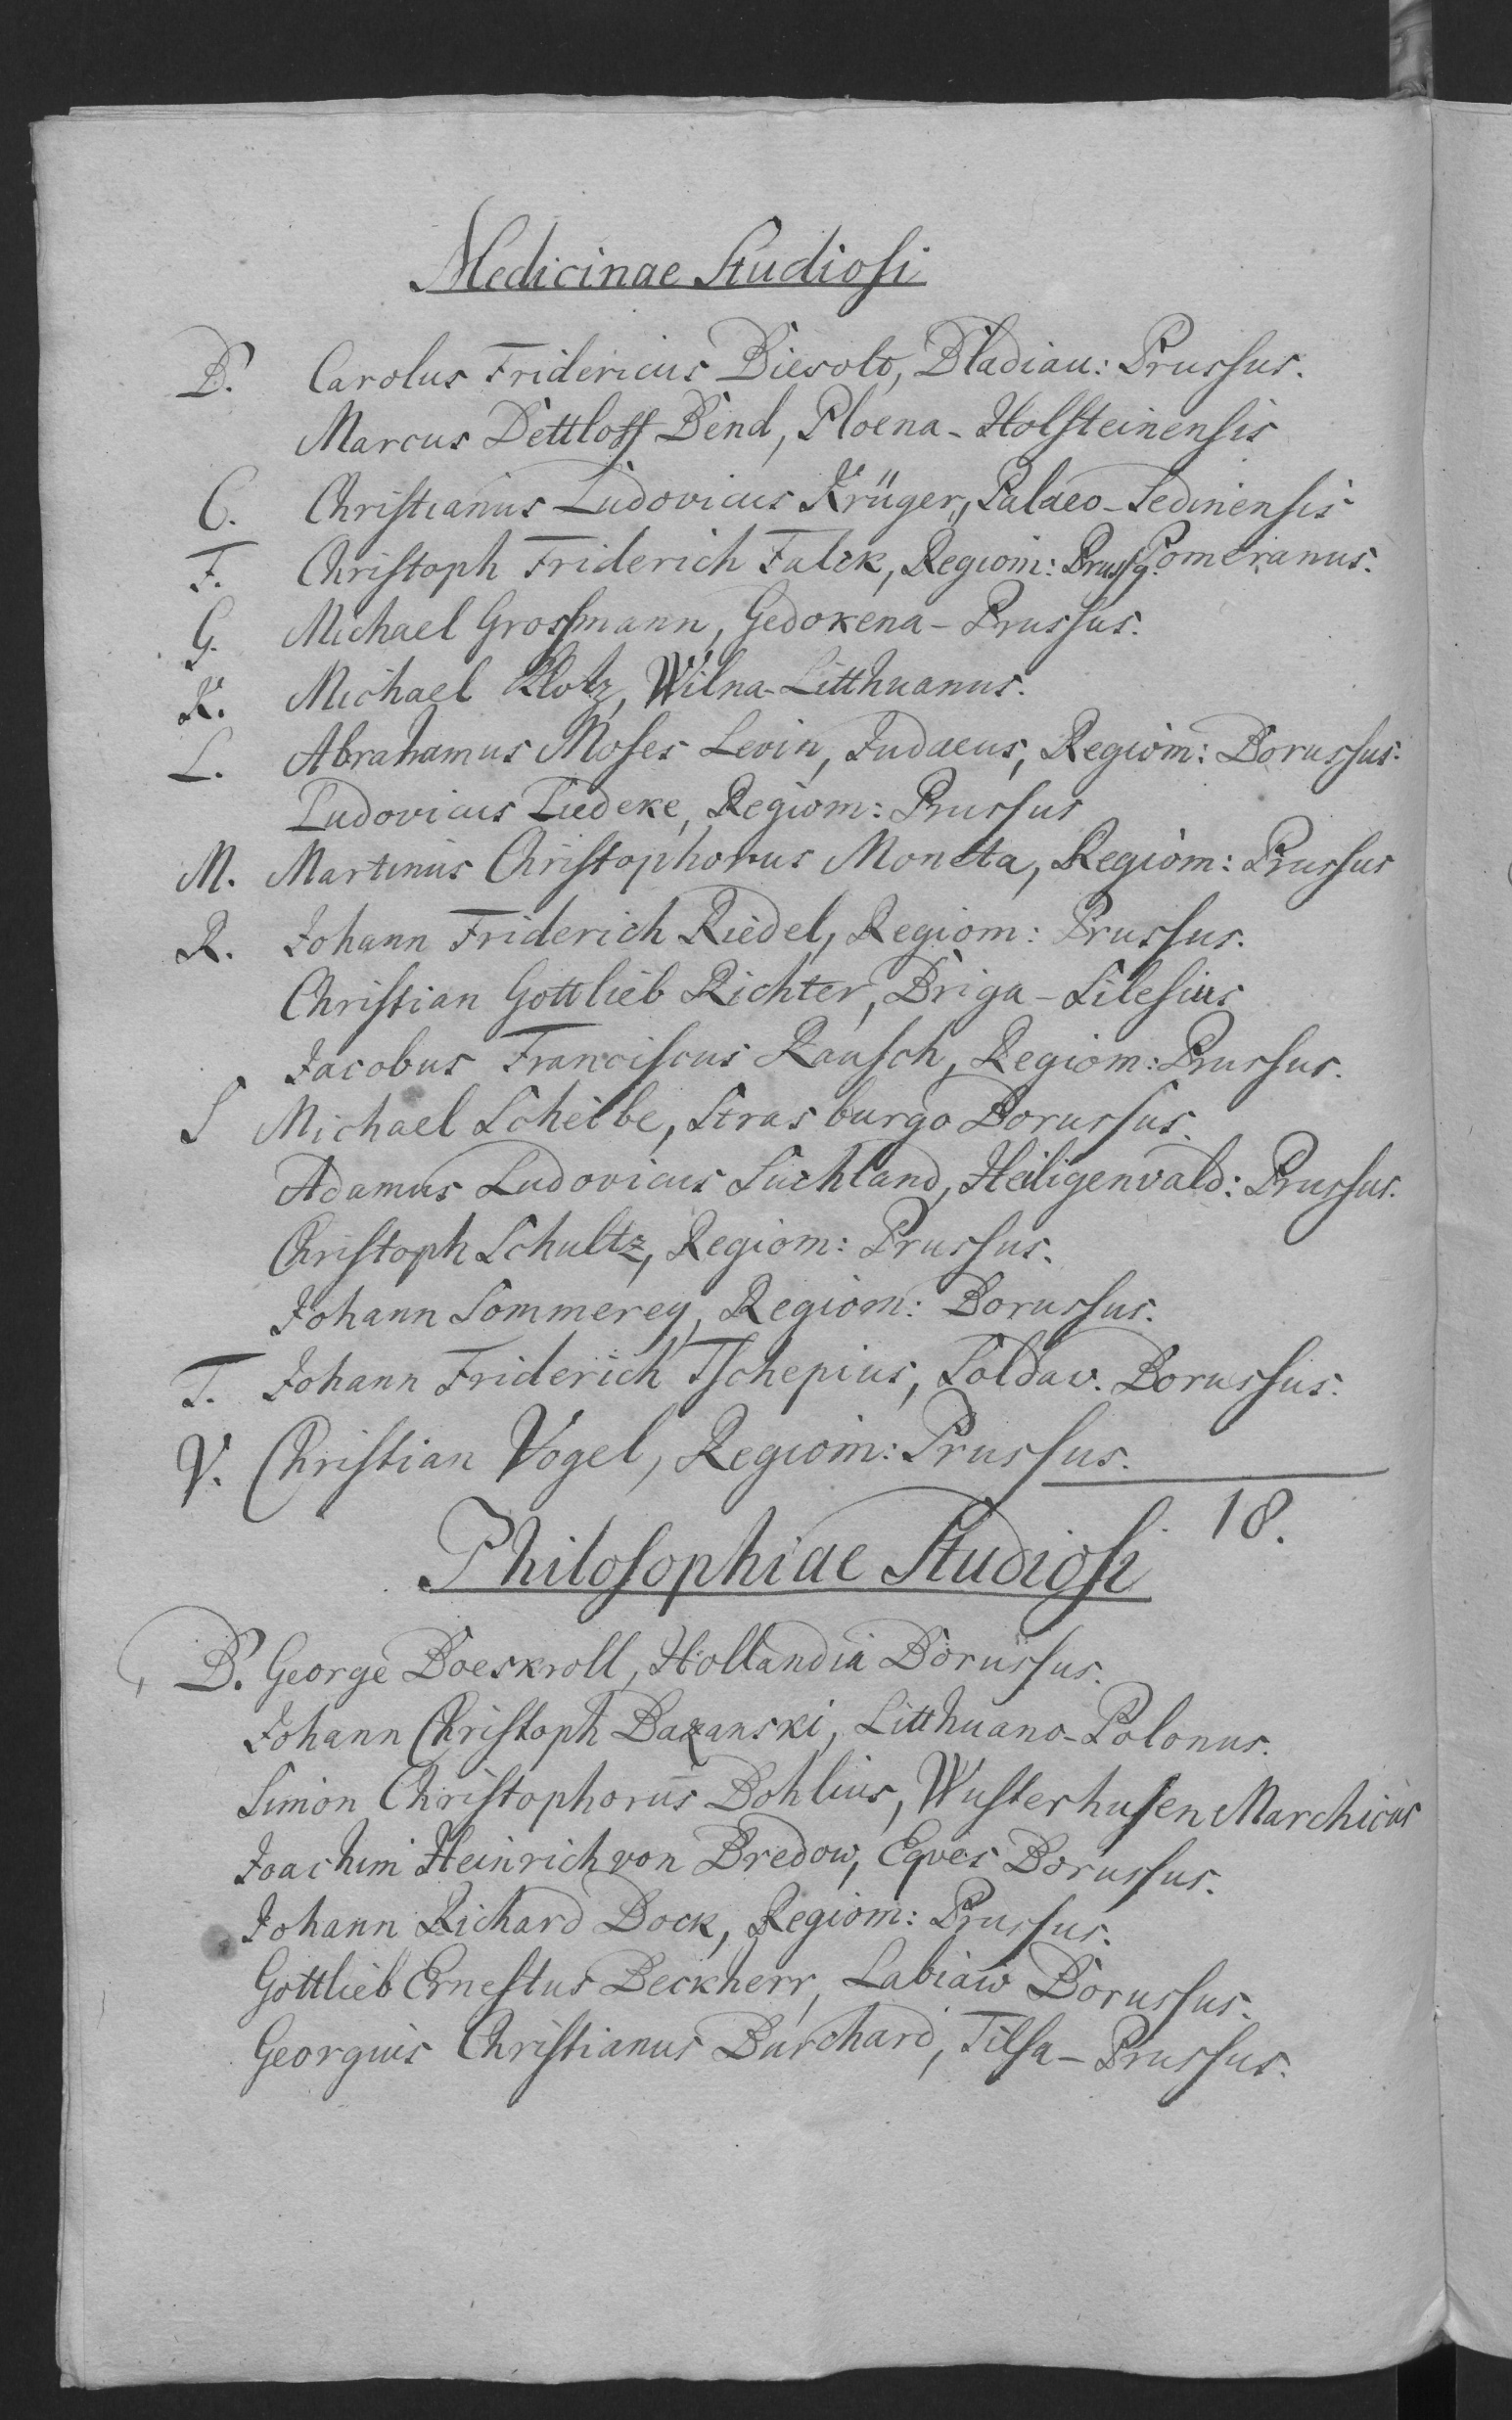 Medicinae Studiosi
B. Carolus Fridericus Biewolt, Bladiau: Prussus.
Marcus Dettloff Bend, Ploena-Holsteinensis
C. Christianus Ludovicus Krüger, Palaeo-Sedinensis
Pomeranus.
F. Christoph Friderich Falck, Regiom: Pruss9.
G. Michael Grossmann, Gedokena-Prussus.
K. Michael Klotz, Wilna-Litthuanus.
L. Abrahamus Moses Levin, Judaeus, Regiom: Borussus.
Ludovicus Luedeke, Regiom: Prussus
M. Martinus Christophorus Moneta, Regiom: Prussus
R. Johann Friderich Riedel, Regiom: Prussus.
Christian Gottlieb Richter, Briga-Silesius
Jacobus Franciscus Rausch, Regiom: Prussus.
S Michael Scheibe, Strasburgo Borussus.
Adamus Ludovicus Suchland, Heiligenvald: Prussus.
Christoph Schultz, Regiom: Prussus.
Johann Sommerey, Regiom: Borussus.
T. Johann Friderich Tschepius, Soldav. Borussus.
V. Christian Vogel, Regiom: Prussus.
18.
Philosophiae Studiosi
B. George Boeskroll, Hollandia Borussus.
Johann Christoph Bazanski, Litthuano-Polonus.
Simon Christophorus Bohlius, Wusterhusen Marchicus
Joachim Heinrich von Bredow, Eqves Borussus.
Johann Richard Bock, Regiom: Prussus.
Gottlieb Ernestus Beckherr, Labiaw Borussus.
Georgius Christianus Burchard, Tilsa-Prussus.